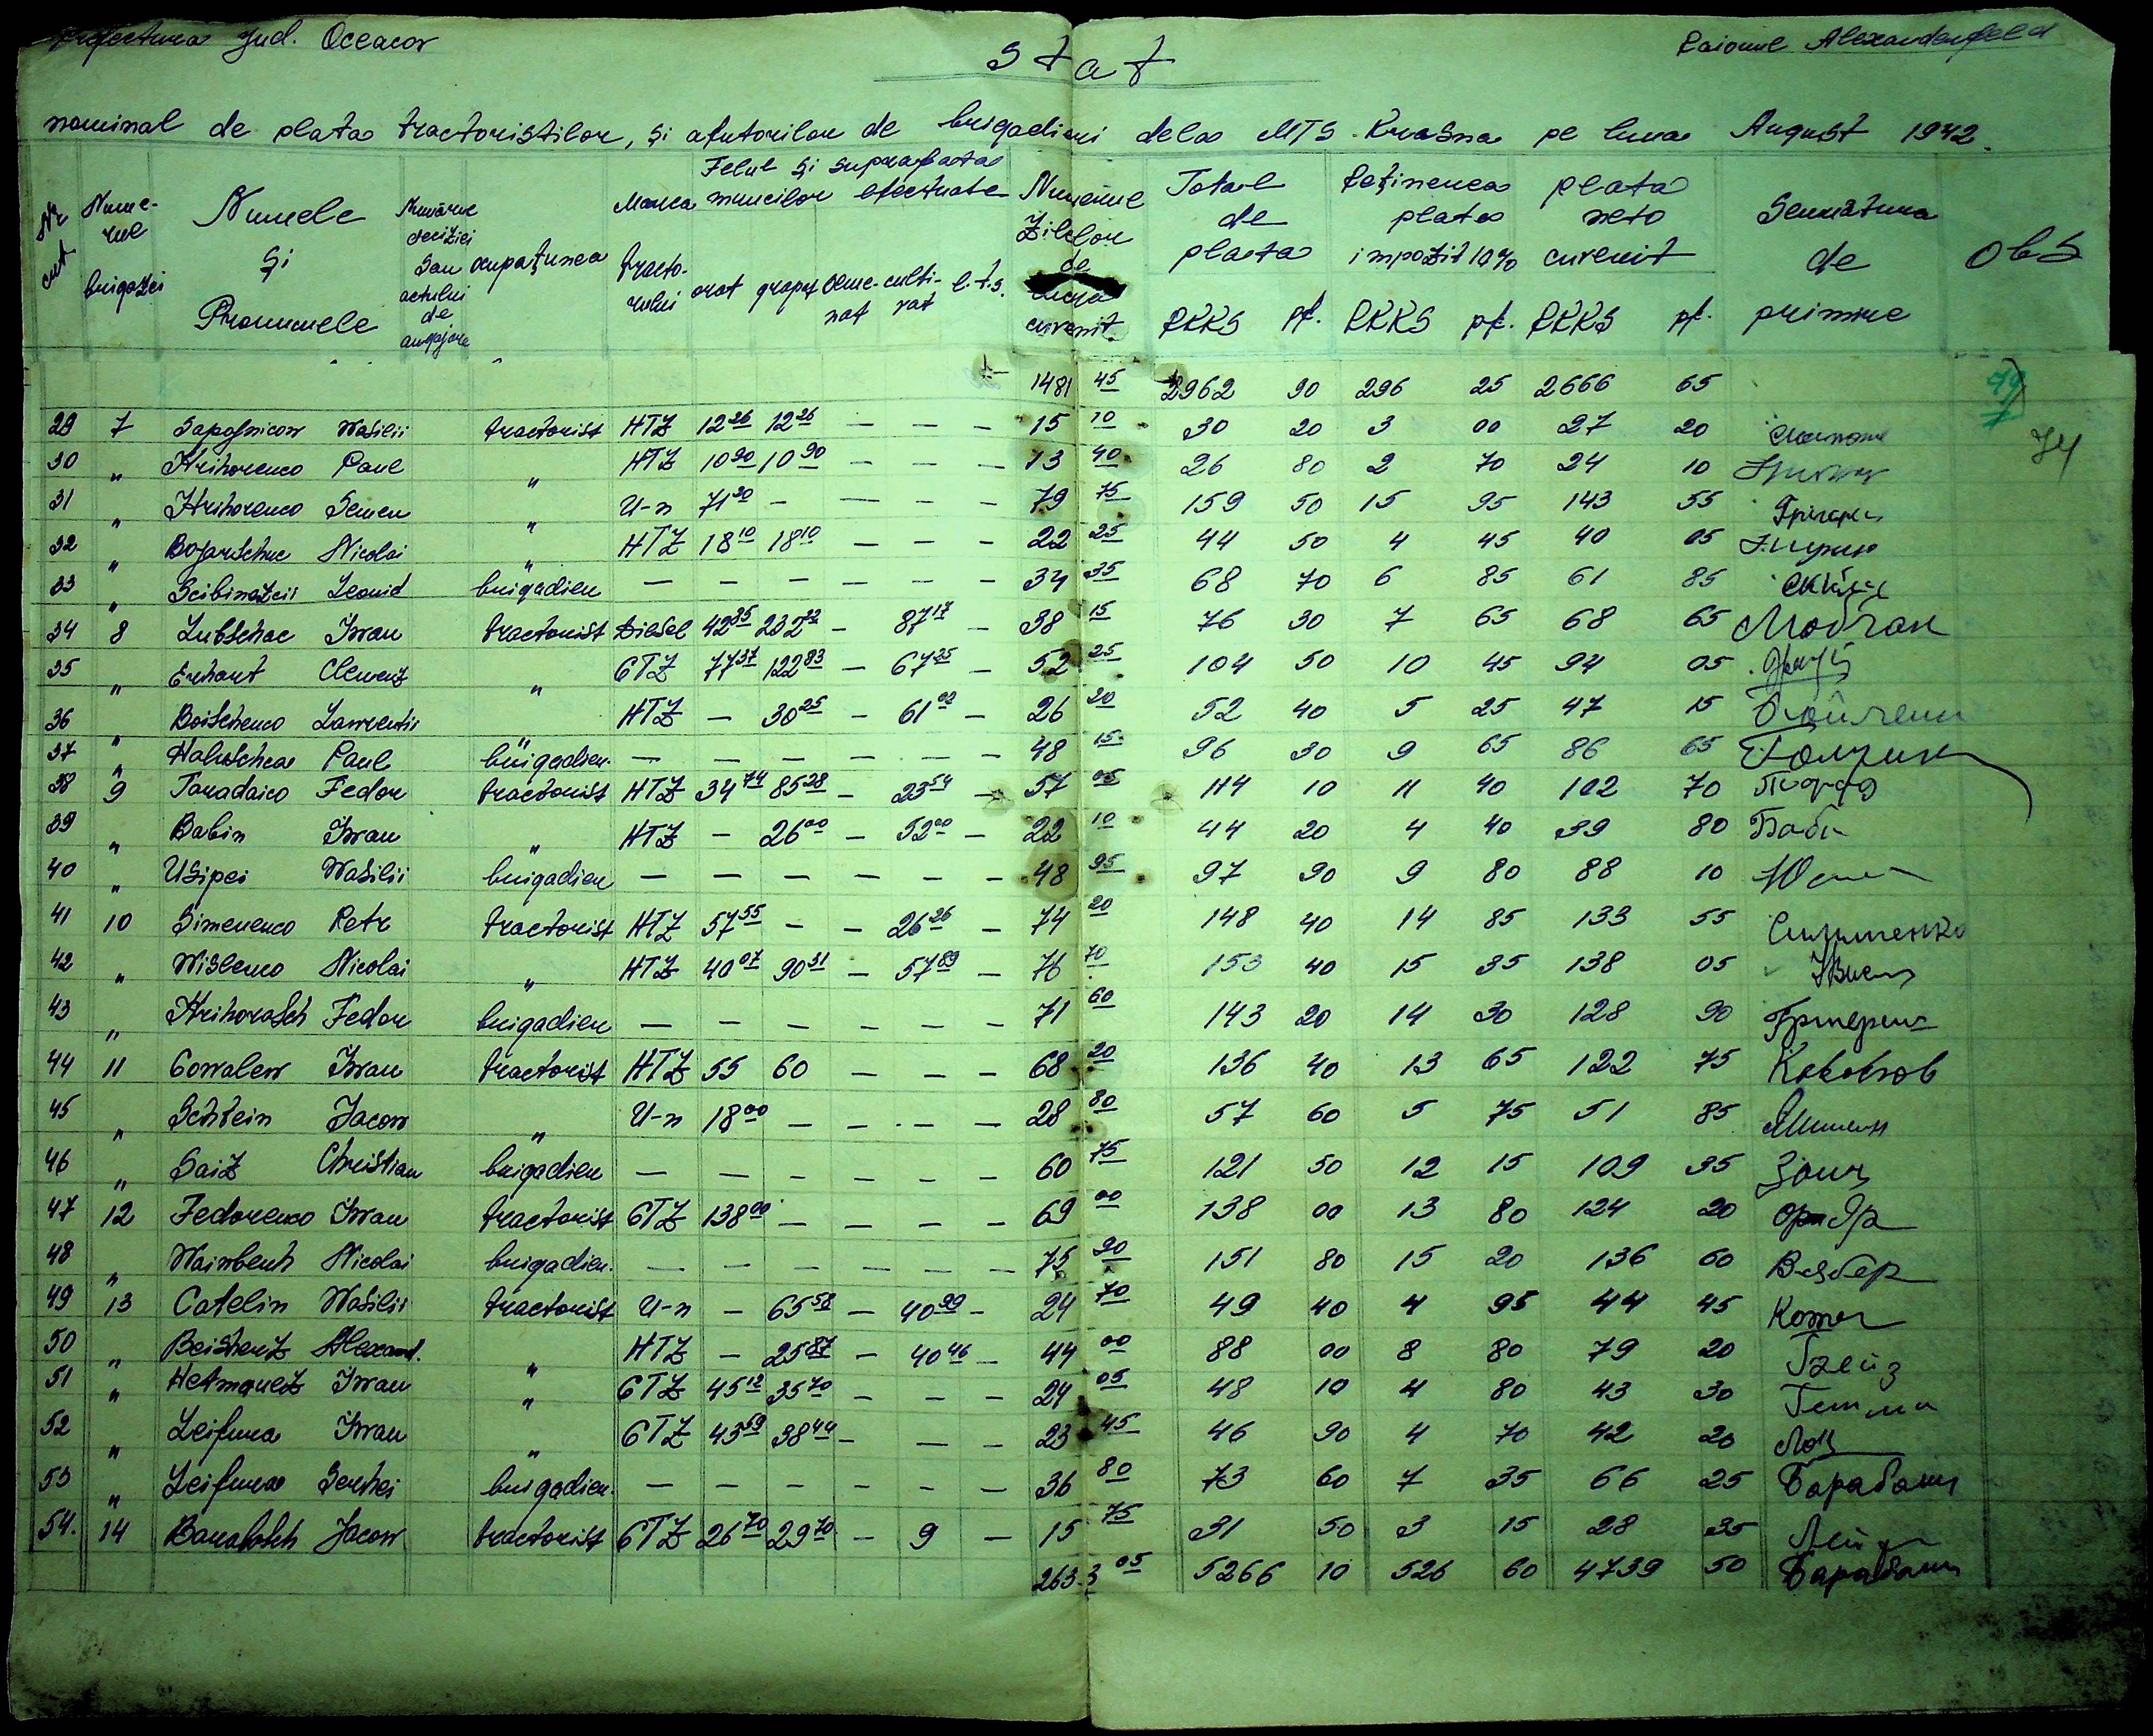 Prefectura Jud. Oceacov
Raionul Alexanderfeld
Stat
nominal de plata tractoristilor, și ajutorilor de brigadieri dela MTS Krasna pe luna August 1942.
Nr. crt. Numerul brigăzei Numele și Pronumele Numărul deciziei sau actului de angajare ocupațunea Marca tractorului Felul și suprafața muncilor efectuate arat grapat semenat cultivat l.t.s. Numărul zilelor de curenit. Total de plata RKKS pf. Reținerea plata impozit 10% RKKS pf. plata neto cuvenit RKKS pf. Semnătura de primire Obs
1481 45 2962 90 296 25 2666 65
29 7 Sapojnicow Wasilii tractorist HTZ 12 26 12 26 — — — 15 10 30 20 3 00 27 20
74
30 " Hrihorenco Paul " HTZ 10 90 10 90 — — — 13 40 26 80 2 70 24 10
31 " Hrihorenco Semen " U-n 71 20 — — — — 79 75 159 50 15 95 143 55
32 " Bojarschuc Nicolai " HTZ 18 10 18 10 — — — 22 25 44 50 4 45 40 05
33 " Scibinszcii Leonid brigadier — — — — — — 34 35 68 70 6 85 61 85
34 8 Lubschac Iwan tractorist Diesel 42 35 232 22 — 87 17 — 38 15 76 30 7 65 68 65
35 " Erhart Clemenz " CTZ 77 37 122 83 — 67 25 — 52 25 104 50 10 45 94 05
36 " Boischenco Lawrentii " HTZ — 30 25 — 61 00 — 26 20 52 40 5 25 47 15
37 " Haluschca Paul brigadier — — — — — — 48 15 96 30 9 65 86 65
38 9 Taradaico Fedor tractorist HTZ 34 74 85 28 — 23 54 — 57 05 114 10 11 40 102 70
39 " Babin Iwan " HTZ — 26 00 — 52 00 — 22 10 44 20 4 40 39 80 Баби
40 " Usipei Wasilii brigadier — — — — — — 48 95 97 90 9 80 88 10
41 10 Simenenco Petr tractorist HTZ 57 55 — — 26 26 — 74 20 148 40 14 85 133 55 Симменко
42 " Wislenco Nicolai " HTZ 40 07 90 31 — 57 89 — 76 70 153 40 15 35 138 05
43 " Hrihorasch Fedor brigadier — — — — — — 71 60 143 20 14 30 128 90
44 11 Cowalew Iwan tractorist HTZ 55 60 — — — 68 20 136 40 13 65 122 75
45 " Schtein Jacow " U-n 18 00 — — — — 28 80 57 60 5 75 51 85
46 " Saiz Christian brigadier — — — — — — 60 75 121 50 12 15 109 35
47 12 Fedorenco Iwan tractorist CTZ 138 00 — — — — 69 00 138 00 13 80 124 20
48 " Wainbenh Nicolai brigadier. — — — — — — 75 90 151 80 15 20 136 60
49 13 Catelin Wasilii tractorist U-n — 65 58 — 40 99 — 24 70 49 40 4 95 44 45
50 " Beishertz Alexand. " HTZ — 25 87 — 40 46 — 44 00 88 00 8 80 79 20
51 " Hetmanetz Iwan " CTZ 45 12 35 70 — — — 24 05 48 10 4 80 43 30
52 " Leifura Iwan " CTZ 45 59 38 44 — — — 23 45 46 90 4 70 42 20
53 " Leifura Serhei brigadier. — — — — — — 36 80 73 60 7 35 66 25 Барабаш
54. 14 Barabasch Jacow tractorist CTZ 26 70 29 70 — 9 — 15 75 31 50 3 15 28 35
2633 05 5266 10 526 60 4739 50 Барабаш